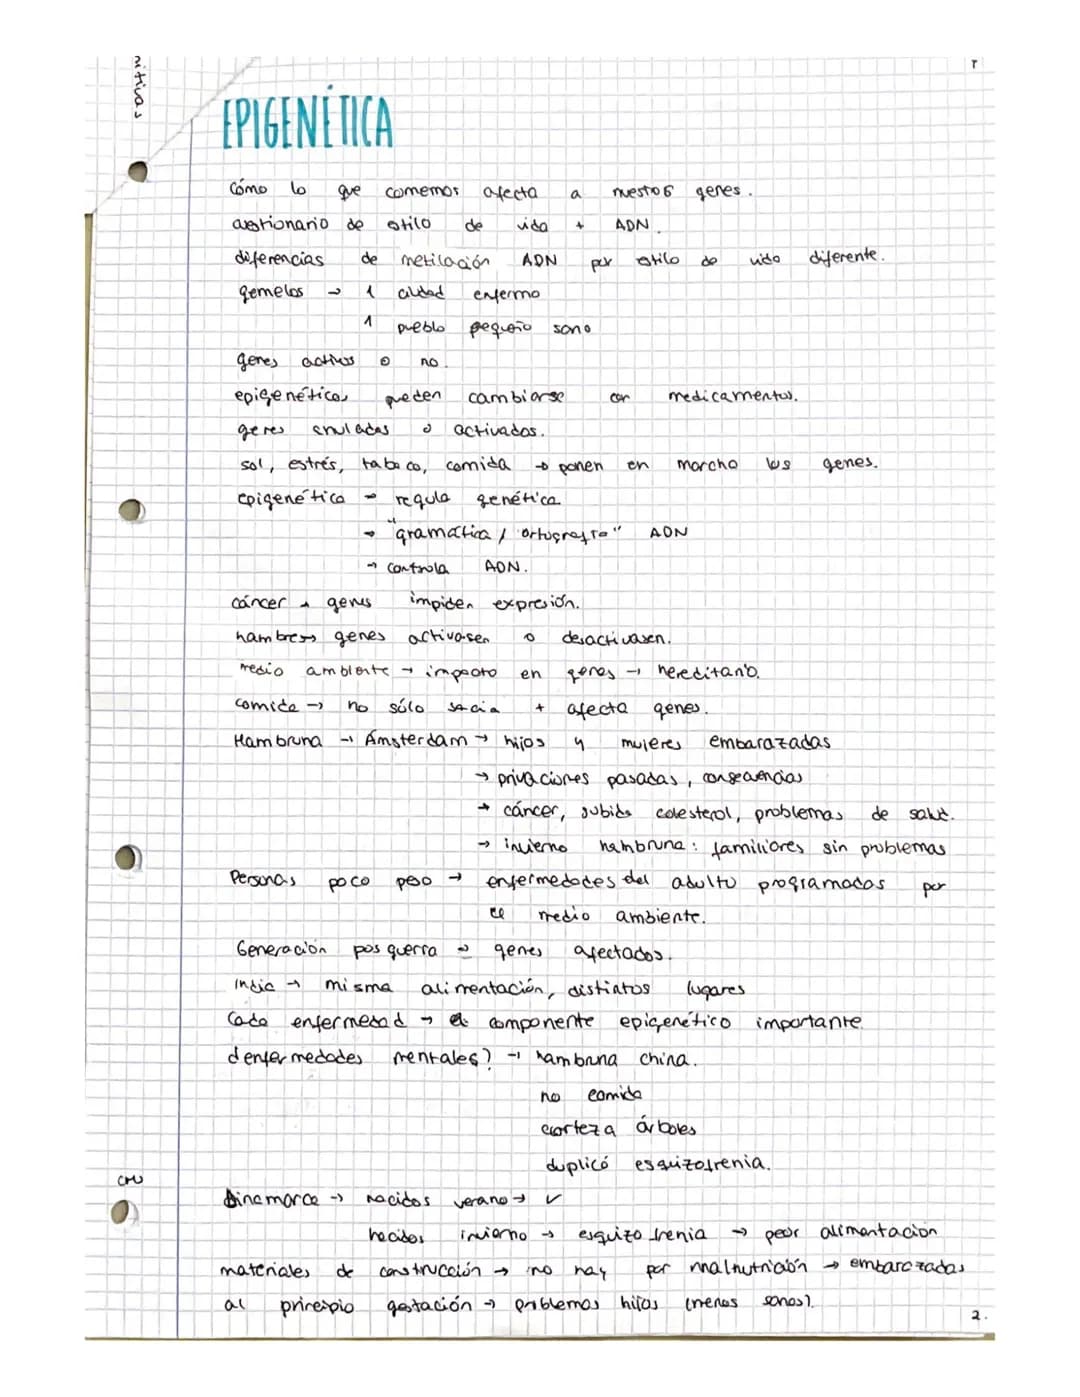 nitivas
EPIGENÉTICA
Cómo lo que comemos afecta a nuestos genes.
cuestionario de estilo de vida + ADN.
diferencias de metilación ADN por estilo de vida diferente.
gemelos → 1 ciudad enfermo
1 pueblo pequeño sano
genes activos o no.
epigenéticas pueden cambiarse con medicamentos.
genes anulados o activados.
sol, estrés, tabaco, comida → ponen en marcha los genes.
epigenética → regula genética
→ "gramática / ortografía" ADN
→ controla ADN.
cáncer → genes impiden expresión.
hambre → genes activasen o desactivasen.
medio ambiente → impacto en genes → hereditario.
comida → no sólo sacia + afecta genes.
Hambruna → Ámsterdam → hijos y mujeres embarazadas
→ privaciones pasadas, consecuencias
→ cáncer, subida colesterol, problemas de salud.
→ invierno hambruna: familiares sin problemas
Personas poco peso → enfermedades del adulto programadas por
el medio ambiente.
Generación pos guerra → genes afectados.
India → misma alimentación, distintos lugares
Cada enfermedad → componente epigenético importante.
d enfermedades mentales? → hambruna china.
no comida
corteza árboles
duplicó esquizofrenia.
Dinamarca → nacidos verano → ✓
nacidos invierno → esquizofrenia → peor alimentación
materiales de construcción → no hay por malnutrición → embarazadas
al principio gestación → problemas hijos (menos sanos).
2.